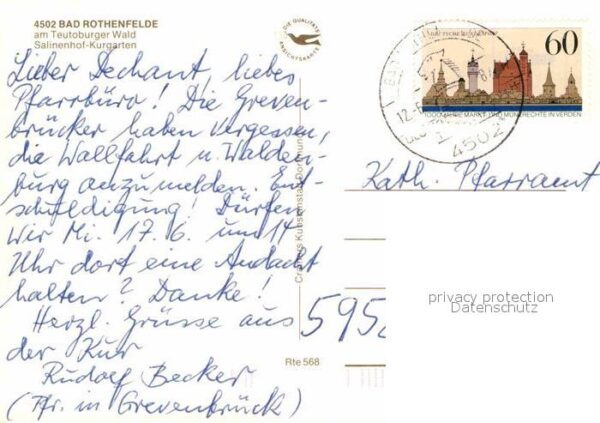 4502 BAD ROTHENFELDE
am Teutoburger Wald
Salinenhof-Kurgarten
Lieber Dechant, liebes
Pfarrbüro! Die Greven-
brücker haben vergessen,
die Wallfahrt n. Walden-
burg anzumelden. Ent-
schuldigung! Dürfen
wir Mi. 17.6. um 14
Uhr dort eine Andacht
halten? Danke!
Herzl. Grüsse aus
der Kur
Rudolf Becker
(Pfr. in Grevenbrück)
DIE QUALITÄTS
ANSICHTSKARTE
Rte 568
60
1000 JAHRE MARKT- UND MÜNZRECHTE IN VERDEN
4502
Kath. Pfarramt
595
privacy protection
Datenschutz